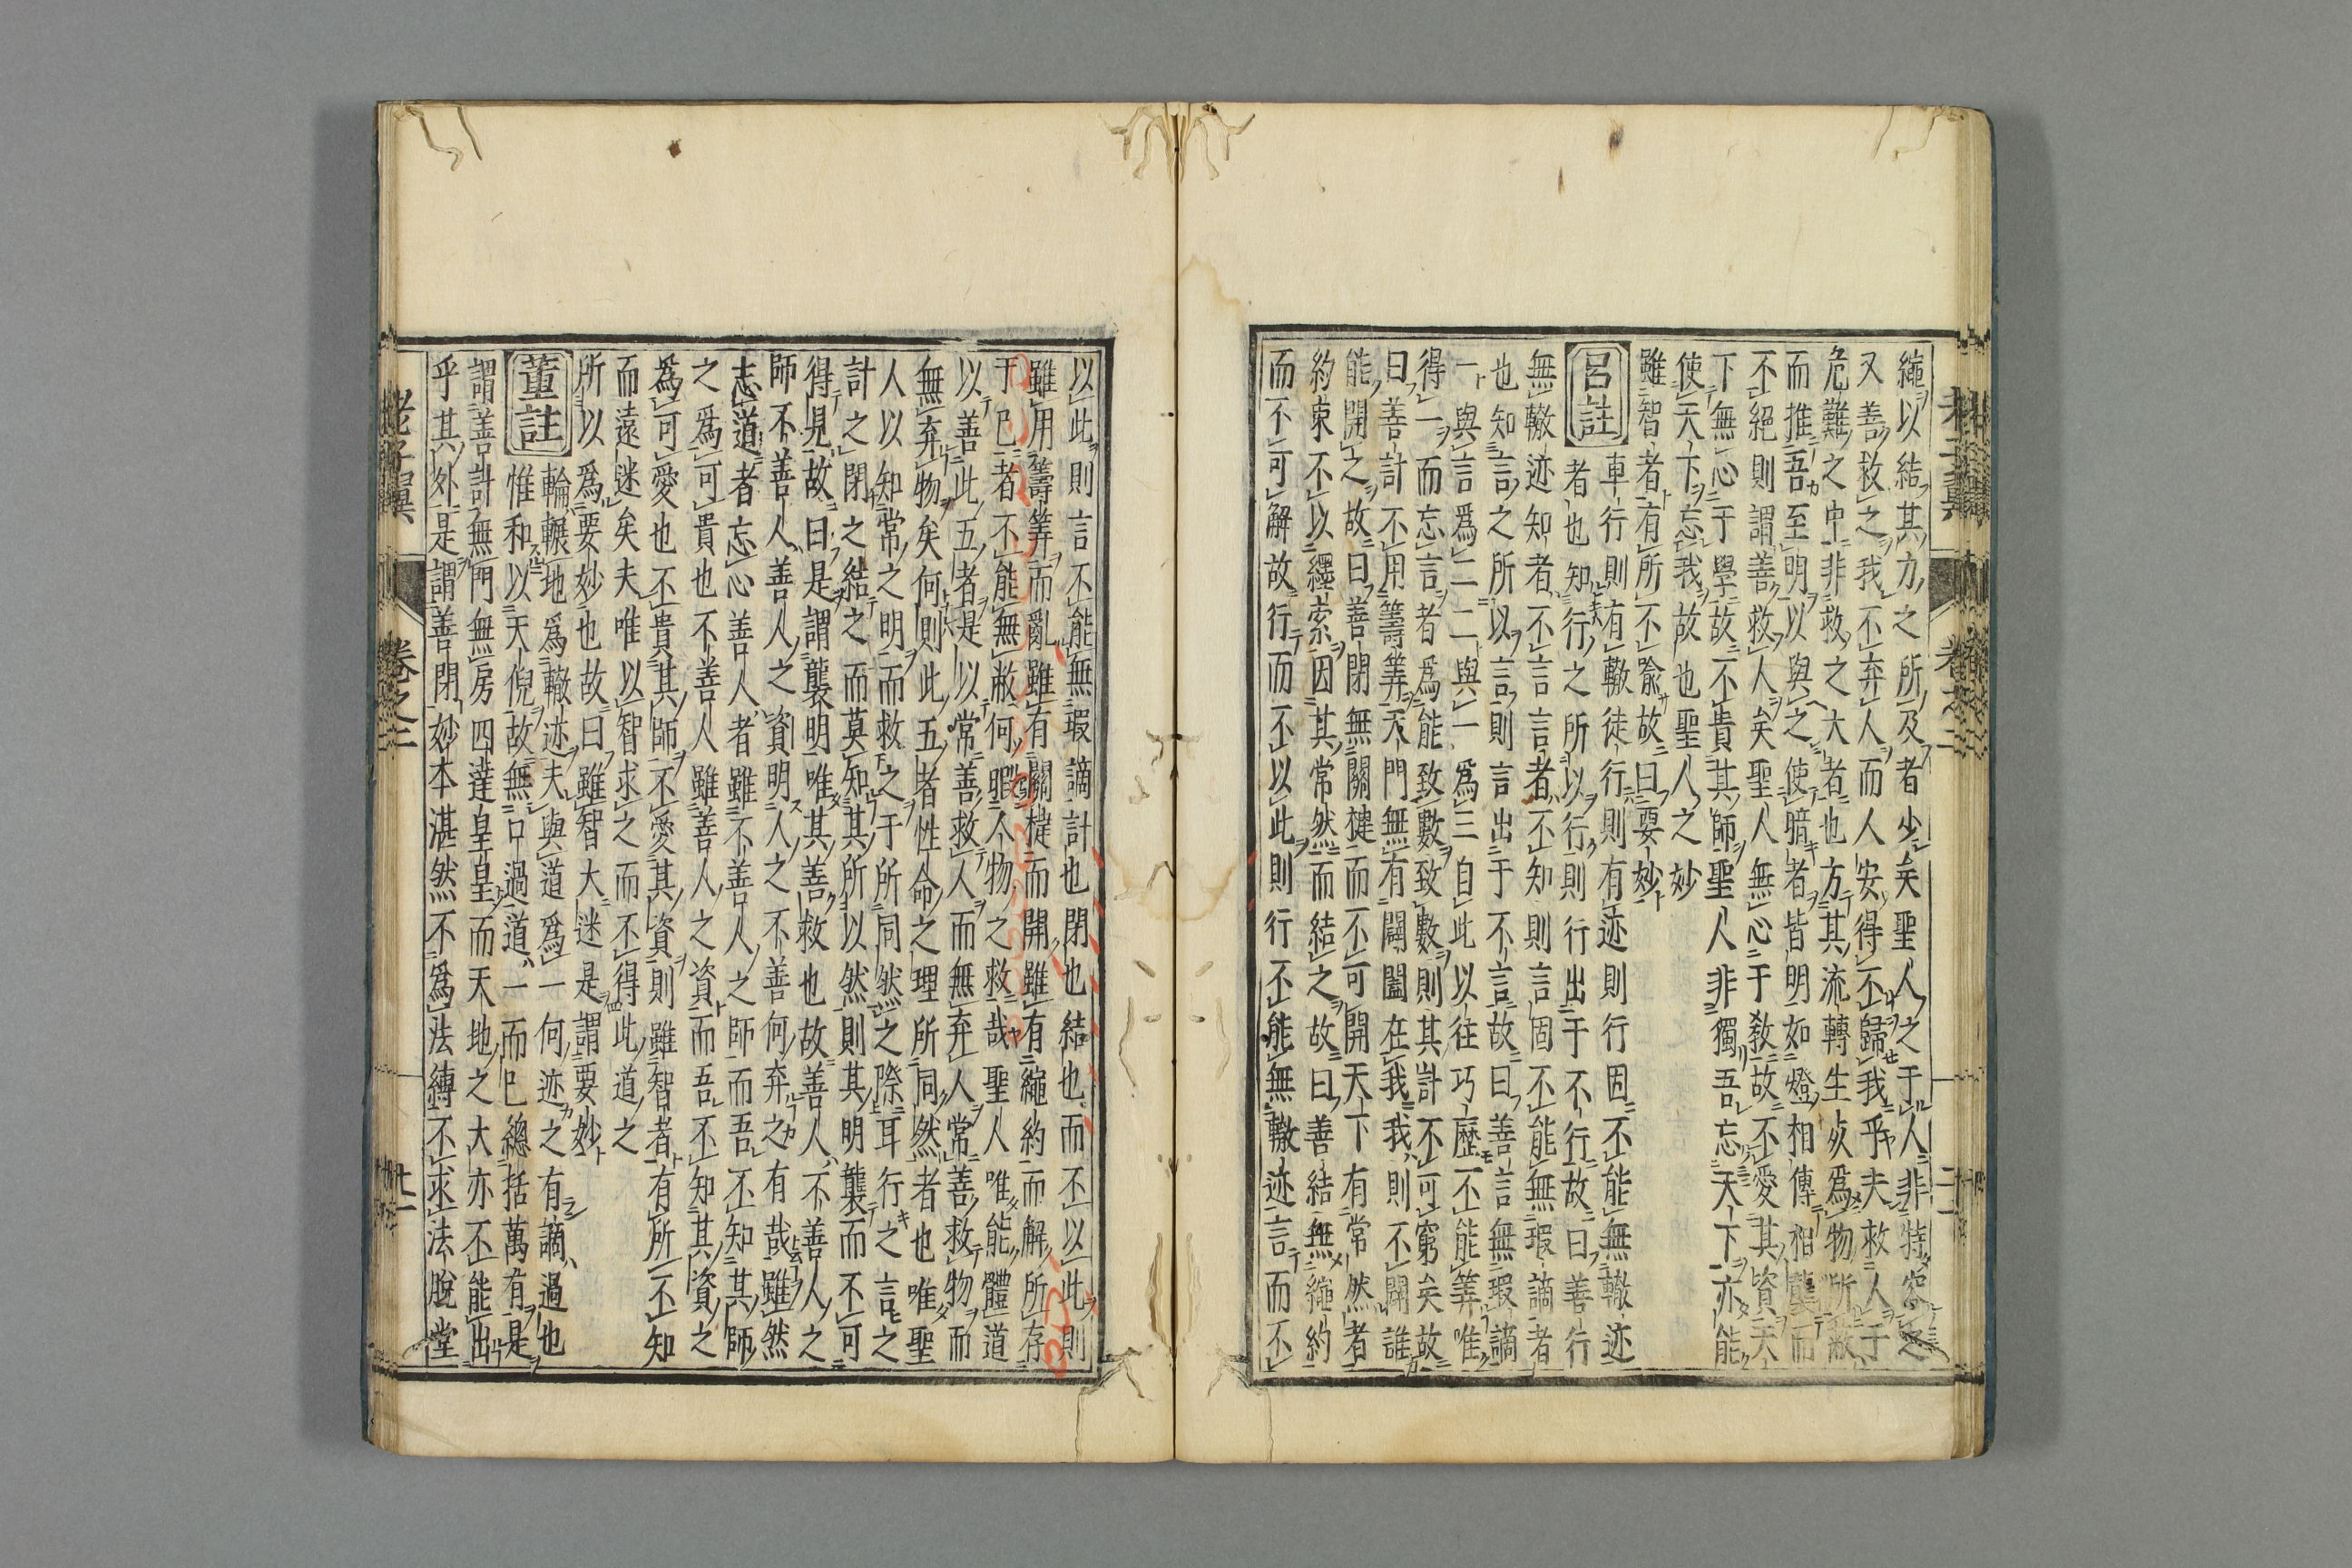 繩以結其力之所及者少矣聖人之于人非特容之
又善救之我不弃人而人安得不歸我乎夫救人于
危難之中非救之大者也方其流轉生死為物所蔽
而推吾至明以與之使暗者皆明如燈相傳相襲而
不絕則謂善救人矣聖人無心于教故不愛其資天
下無心于學故不貴其師聖人非獨吾忘天下亦能
使天下忘我故也聖人之妙
雖智者有所不喻故曰要妙
呂註
車行則有轍徒行則有迹則行固不能無轍迹
者也知行之所以行則行出于不行故曰善行
無轍迹知者不言言者不知則言固不能無瑕謫者
也知言之所以言則言出于不言故曰善言無瑕謫
一與言為二二與一為三自此以往巧歷不能筭唯
得一而忘言者為能致數致數則其計不可窮矣故
曰善計不用籌筭天門無有闢闔在我我則不闢誰
能開之故曰善閉無關楗而不可開天下有常然者
約束不以纆索因其常然而結之故曰善結無繩約
而不可解故行而不以此則行不能無轍迹言而不
老子翼
卷之二
以此則言不能無瑕謫計也閉也結也而不以此則
雖用籌筭而亂雖有關楗而開雖有繩約而解所存
于已者不能無蔽何暇人物之救哉聖人唯能體道
以善此五者是以常善救人而無弃人常善救物而
無弃物矣何則此五者性命之理所同然者也唯聖
人以知常之明而救之于所同然之際耳行之言之
計之閉之結之而莫知其所以然則其明襲而不可
得見故曰是謂襲明唯其善救也故善人不善人之
師不善人善人之資明人之不善何弃之有哉雖然
志道者忘心善人者雖不善人之師而吾不知其師
之為可貴也不善人雖善人之資而吾不知其資之
為可愛也不貴其師不愛其資則雖智者有所不知
而遠迷矣夫唯以智求之而不得此道之
所以為要妙也故曰雖智大迷是謂要妙
董註
輪輾地為轍迹夫與道為一何迹之有謫過也
惟和以天倪故無口過道一而已總括萬有是
謂善計無門無房四達皇皇而天地之大亦不能出
乎其外是謂善閉妙本湛然不為法縛不求法脫堂
老子翼
卷之二
廿一